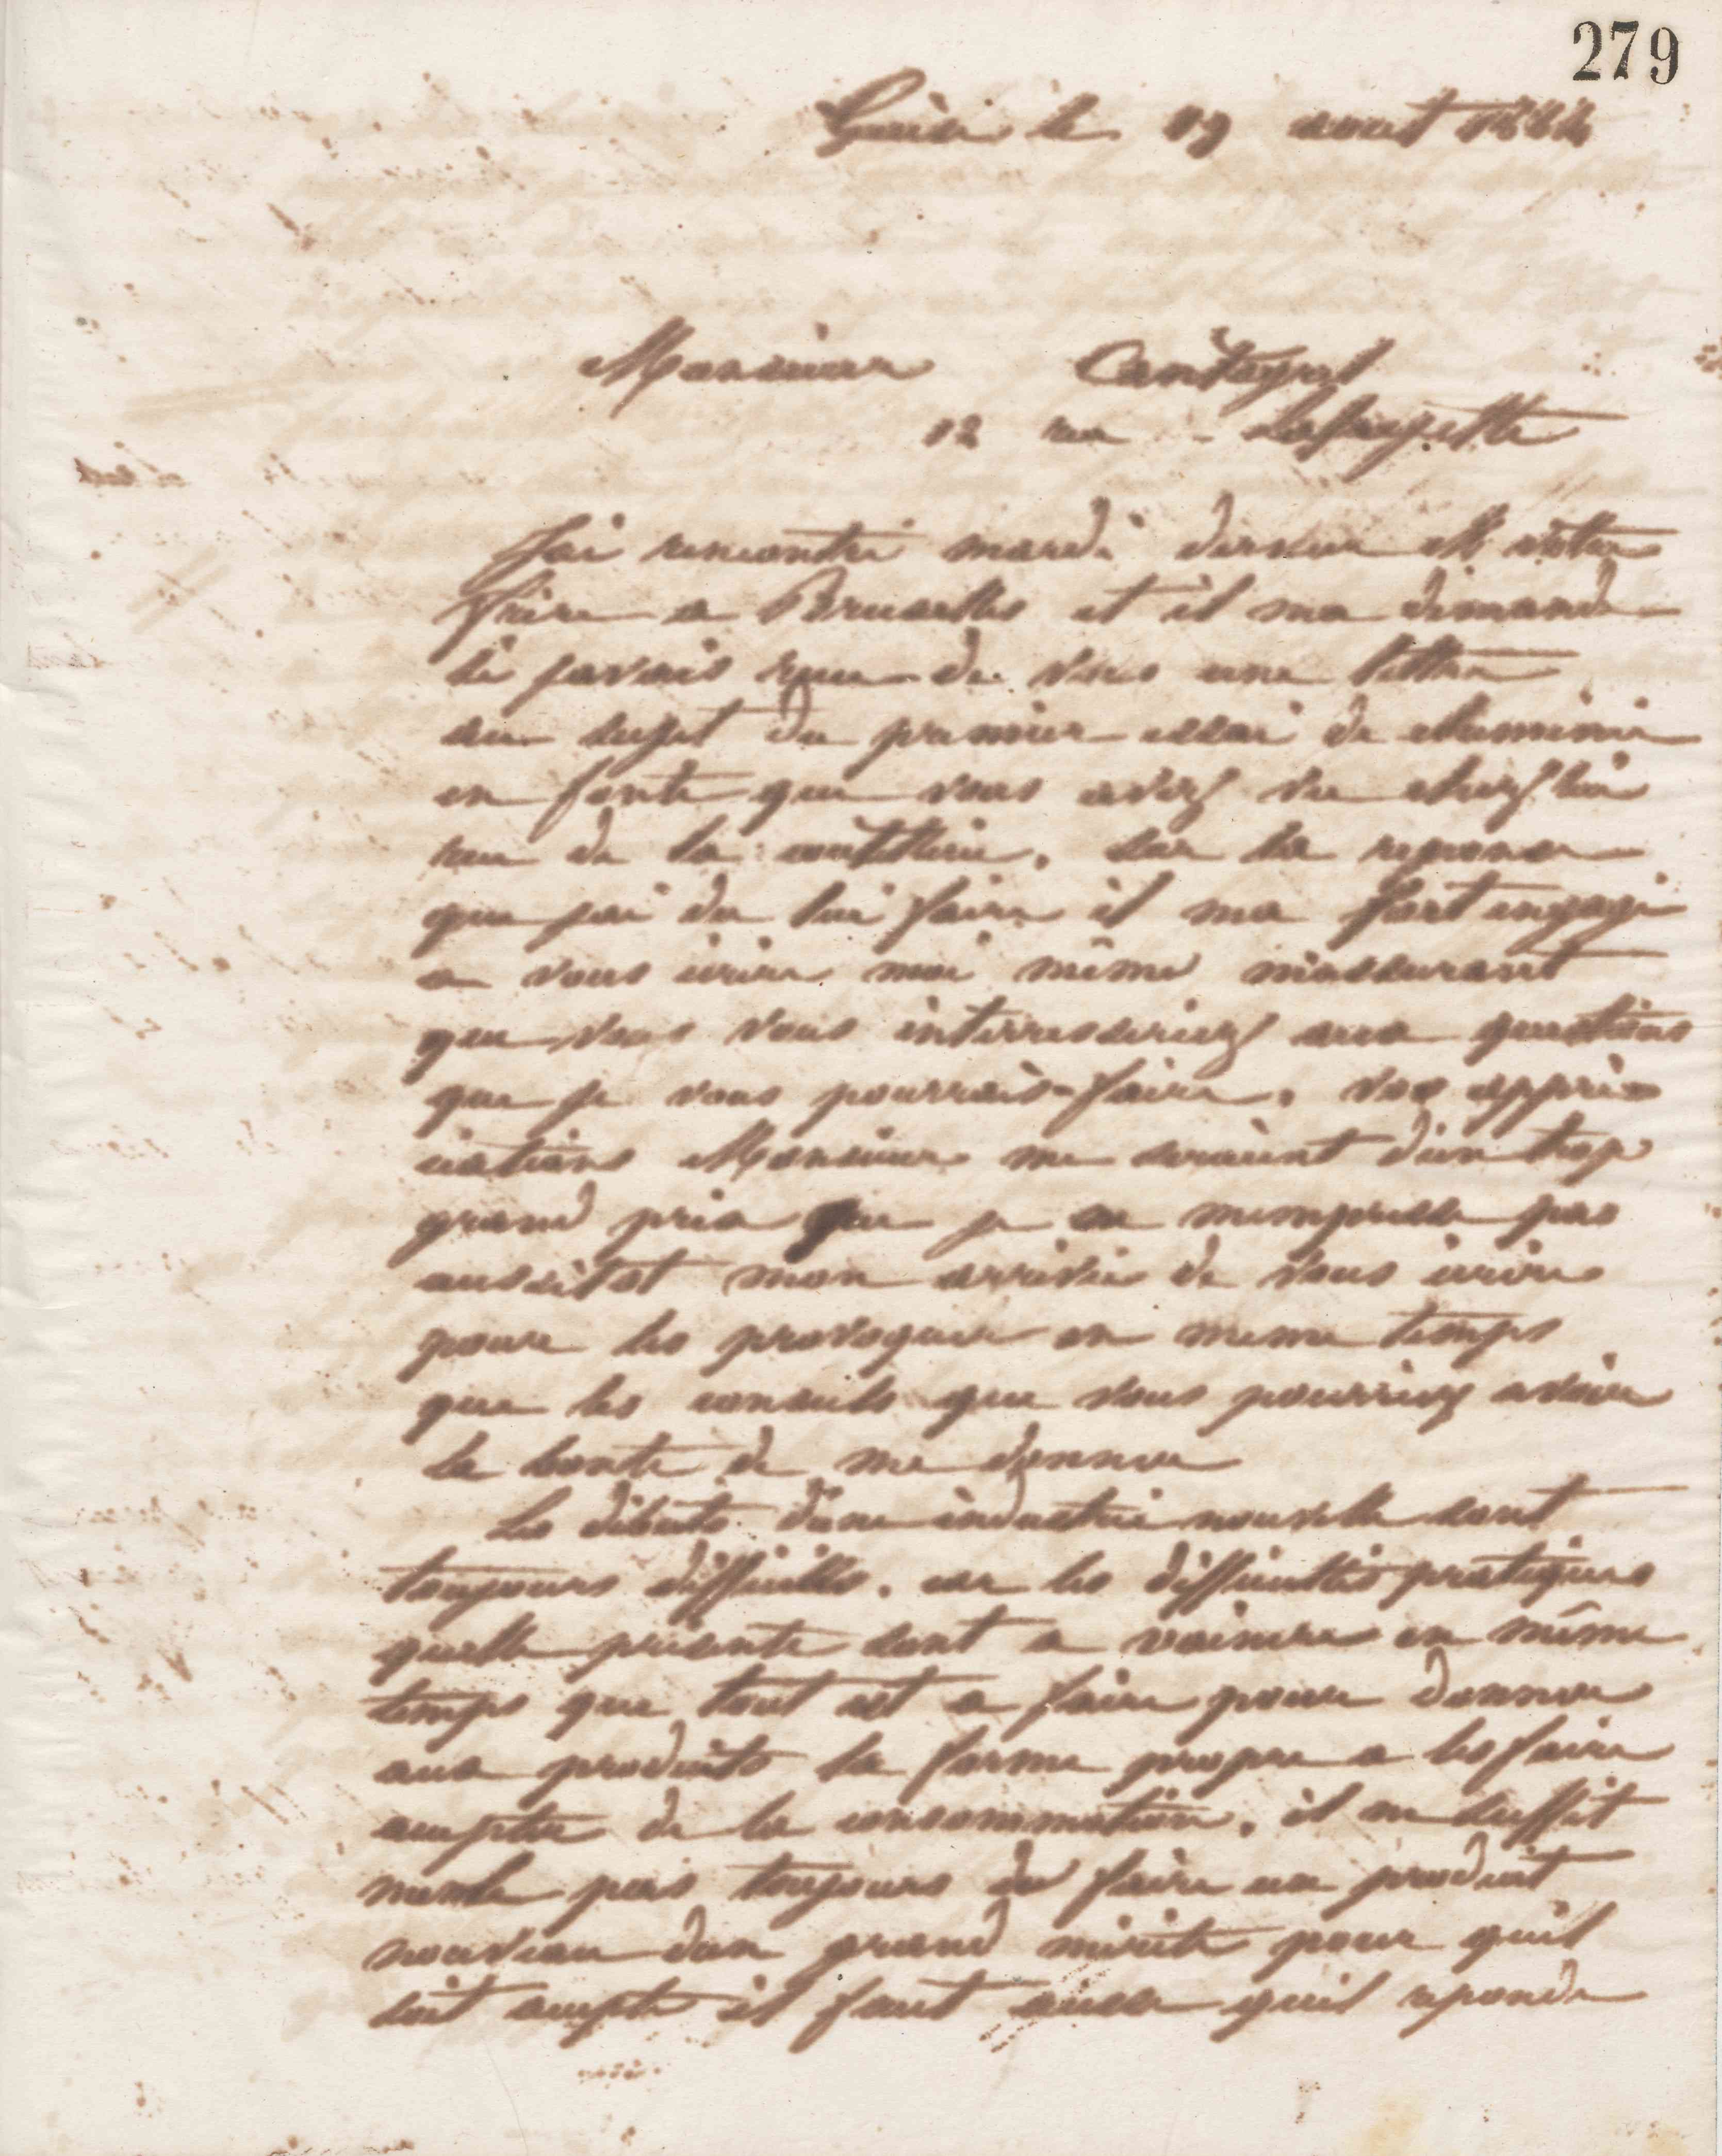 279
Guise le 19 aout 1884
Monsieur Cantagrel
12 rue Lafayette
J'ai rencontré mardi dernier Mr votre
frère a Bruxelles et il ma demandé
si javais recu de vous une lettre
au sujet du premier essai de cheminée
en fonte que vous avez vu chez lui
rue de la coutellerie. sur la reponse
que jai du lui faire il ma fort engagé
a vous écrire moi même massurant
que vous vous interresseriez aux questions
que je vous pourrais faire. vos appré
ciations Monsieur me seraient d'un trop
grand prix que je ne mempresse pas
aussitot mon arrivée de vous écrire
pour les provoquer en meme temps
que les conseils que vous pourriez avoir
la bonté de me donner
Les débuts d'une industrie nouvelle sont
toujours difficiles. car les difficultés pratiques
quelle présente sont a vaincre en même
temps que tout est a faire pour donner
aux produits la forme propre a les faire
accepter de la consommation. il ne suffit
meme pas toujours de faire un produit
nouveau dun grand mérite pour quil
soit accepté il faut aussi quil reponde